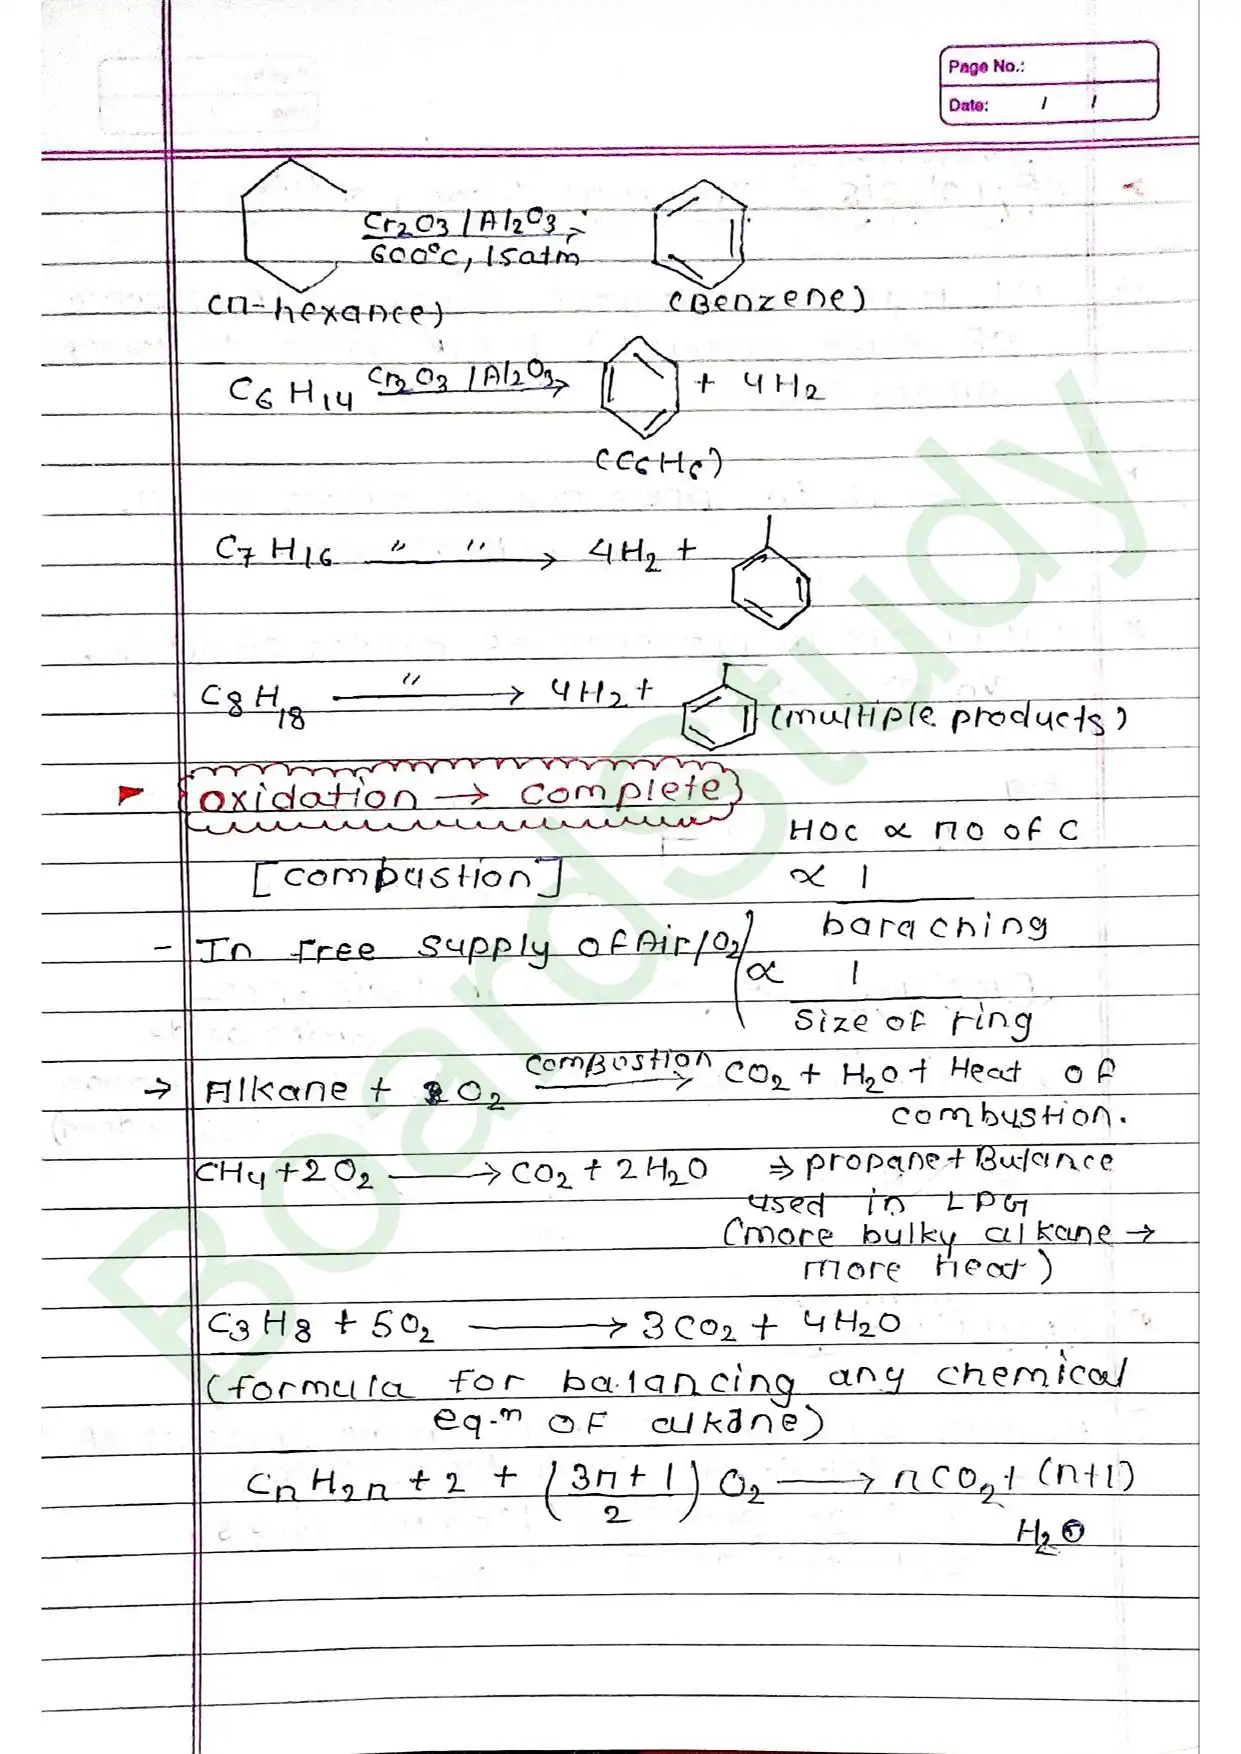 Page No.:
Date: / /
Cr2O3 / Al2O3
600°C, 15atm
(n-hexance)
(Benzene)
C6H14 Cr2O3 / Al2O3 + 4H2
(C6H6)
C7H16 〃 〃 → 4H2 +
C8H18 〃 → 4H2 + (multiple products)
oxidation → complete
HOC ∝ no of C
[combustion]
∝ 1
baraching
- In free supply of Air/O2
∝ 1
Size of ring
→ Alkane + O2 combustion → CO2 + H2O + Heat of
combustion.
CH4 + 2O2 → CO2 + 2H2O ⇒ propane + Butance
used in LPG
(more bulky alkane →
more heat)
C3H8 + 5O2 → 3CO2 + 4H2O
(formula for balancing any chemical
eq.n of alkane)
CnH2n + 2 + (3n + 1 / 2) O2 → nCO2 + (n+1)
H2O
BoardStudy